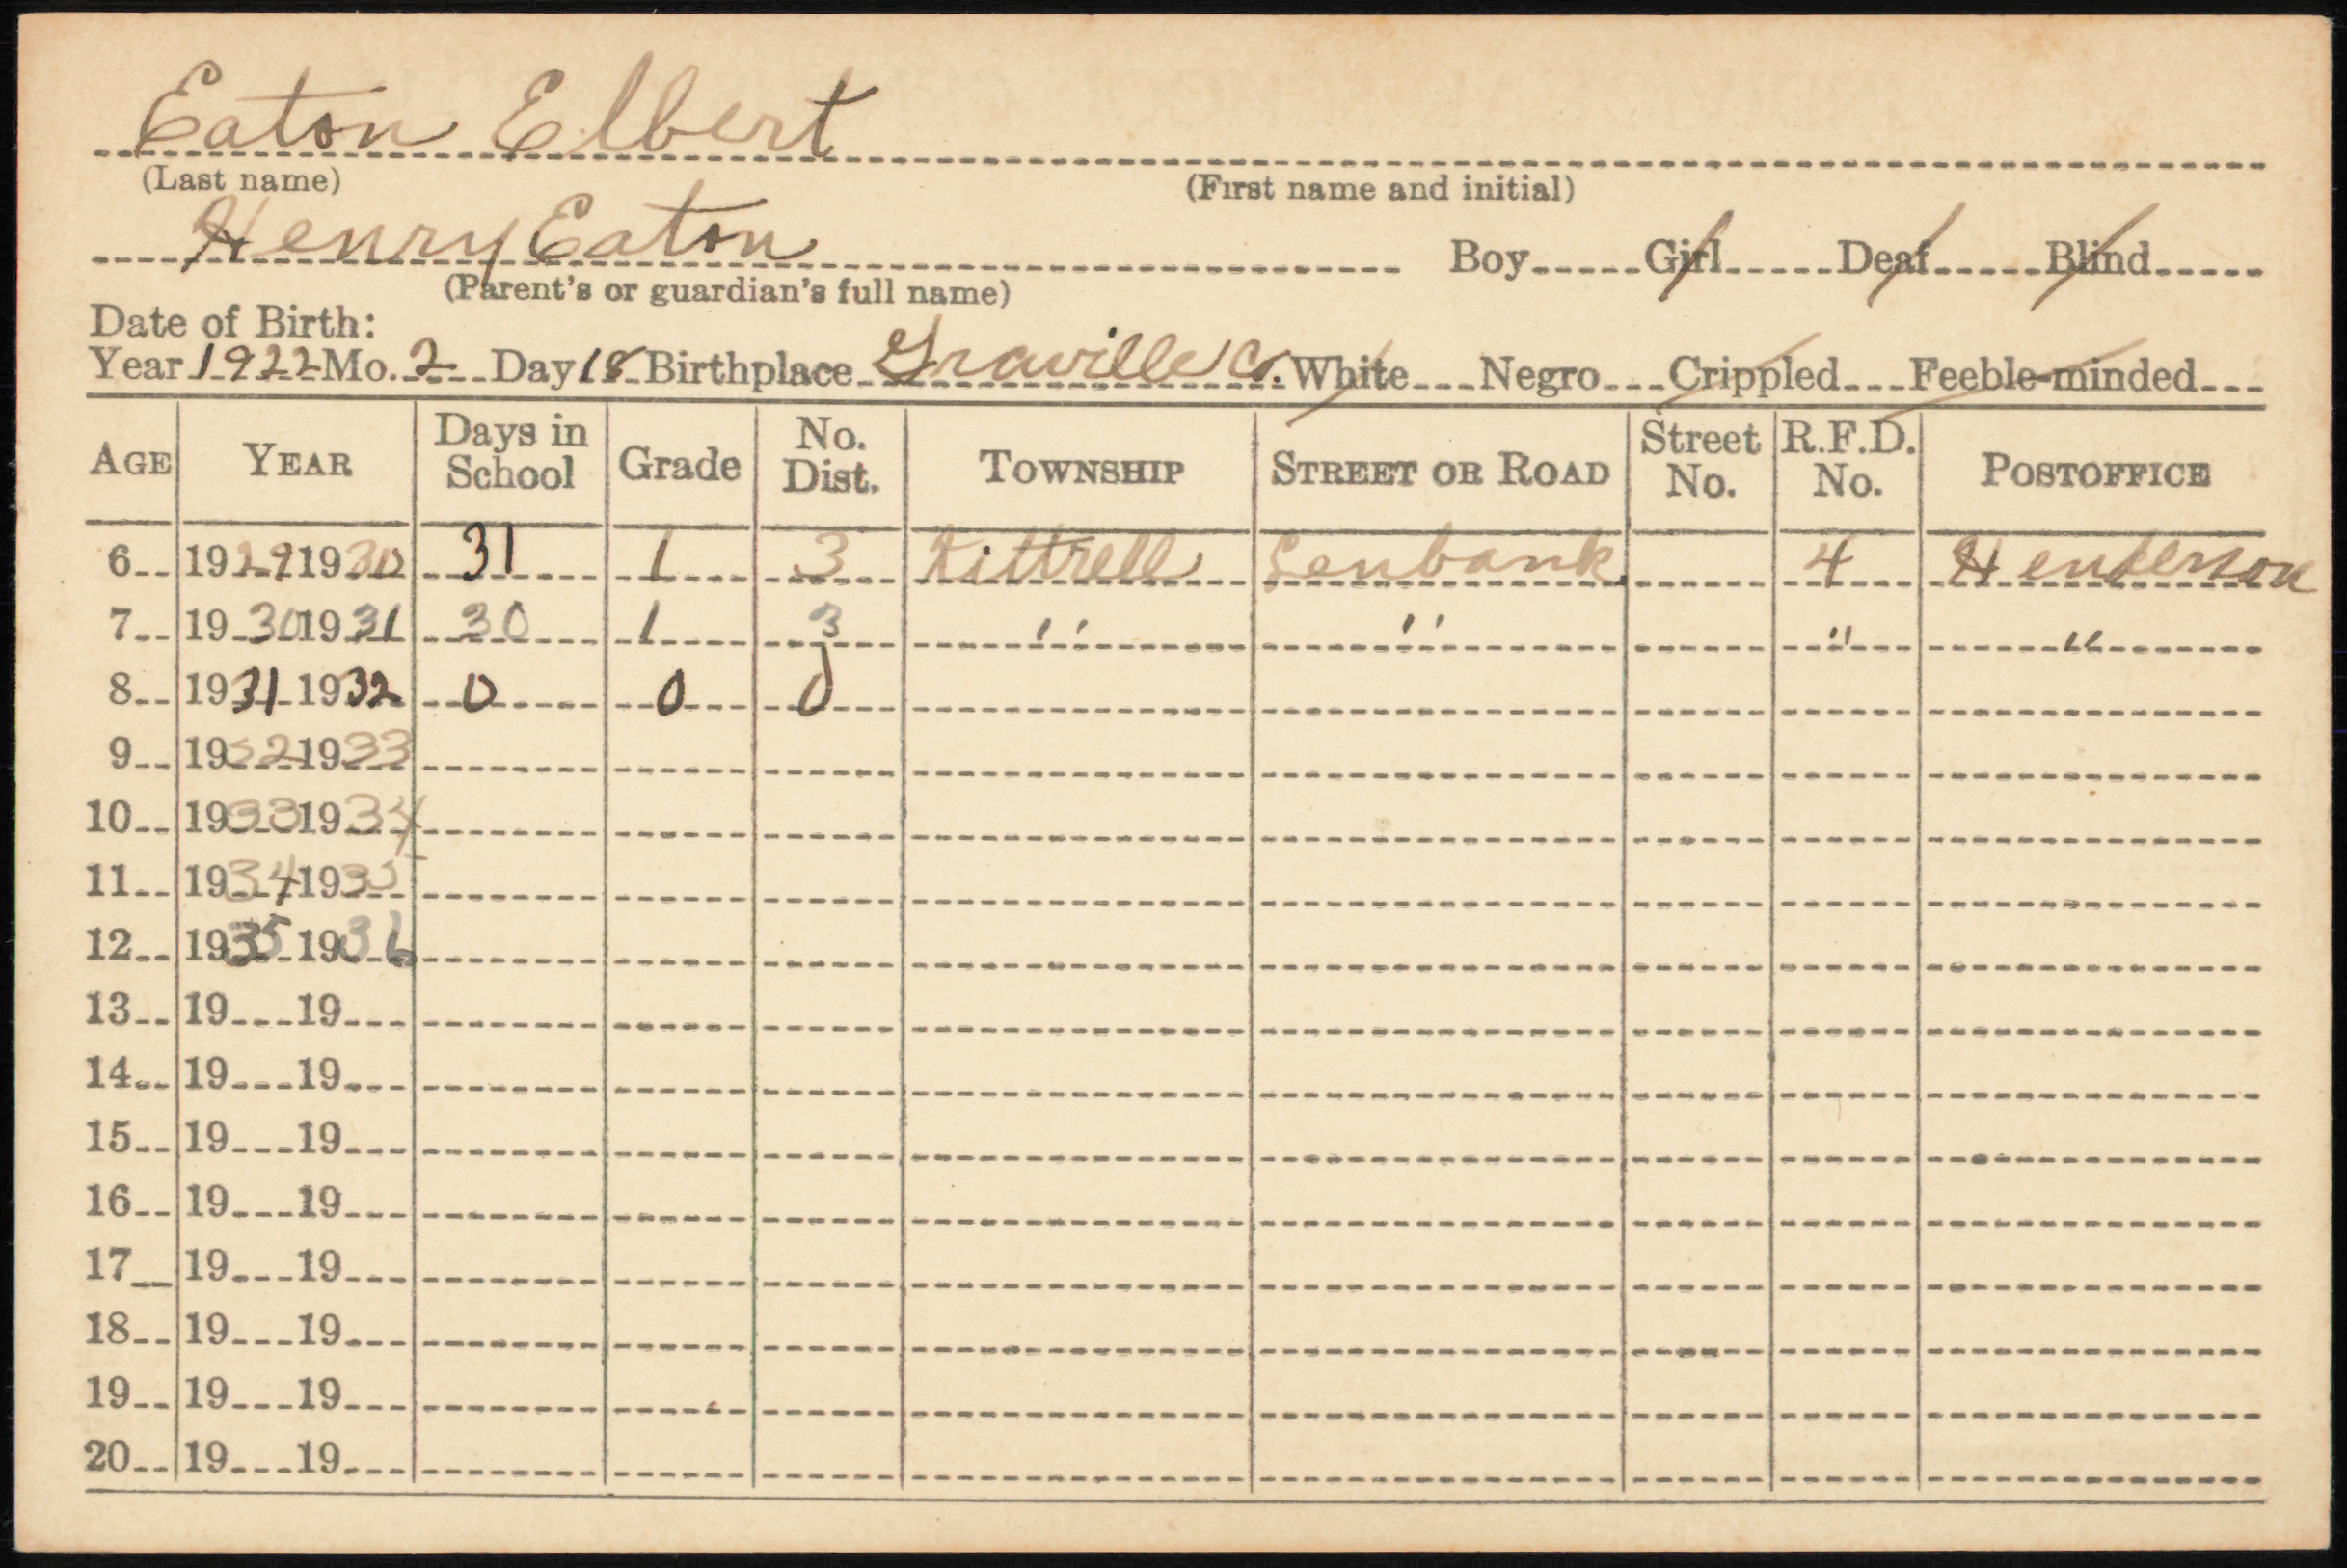 Eaton Elbert
(Last name) (First name and initial)
Henry Eaton Boy Girl Deaf Blind
(Parent's or guardian's full name)
Date of Birth:
Year 1922 Mo. 2 Day 18 Birthplace Granville Co. White Negro Crippled Feeble-minded
AGE YEAR Days in School Grade No. Dist. TOWNSHIP STREET OR ROAD Street No. R.F.D. No. POSTOFFICE
6 1929 1930 31 1 3 Kittrell Genbank 4 Henderson
7 1930 1931 30 1 3 " " " "
8 1931 1932 0 0 0
9 1932 1933
10 1933 1934
11 1934 1935
12 1935 1936
13 19 19
14 19 19
15 19 19
16 19 19
17 19 19
18 19 19
19 19 19
20 19 19